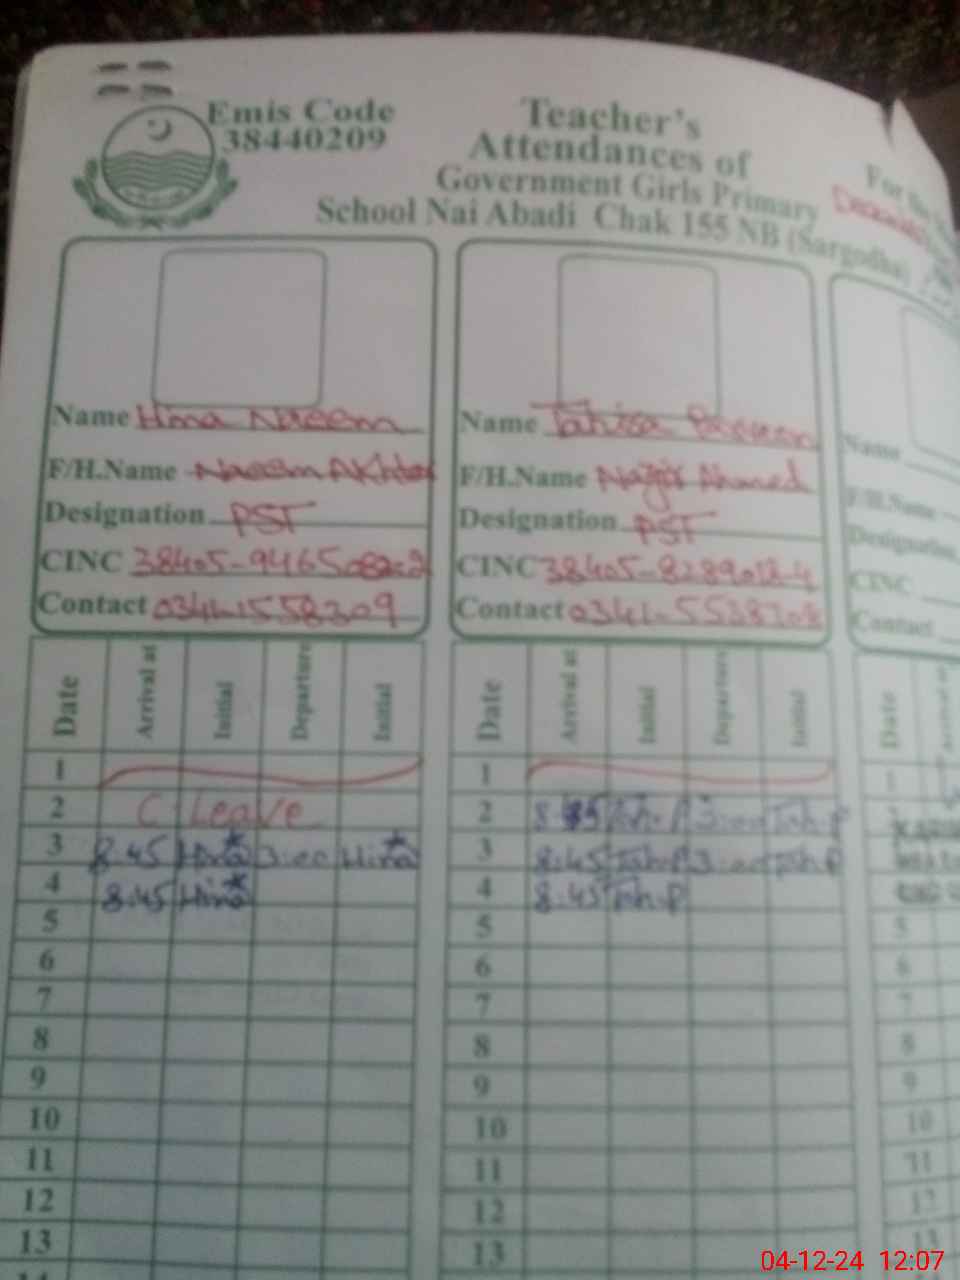 Emis Code
38440209
Teacher's
Attendances of
Government Girls Primary
School Nai Abadi Chak 155 NB (Sargodha)
For the
Name Hina Naeem
F/H.Name Naeem Akhtar
Designation PST
CINC
Contact 0341-1558309
Name Tahira Parveen
F/H.Name Nazir Ahmed
Designation PST
CINC 38405-8289018-4
Contact
Name
F/H.Name
Designation
CINC
Contact
Date Arrival at Initial Departure Initial
1
2 C. Leave
3 8:45 Hina 3:00 Hina
4 8:45 Hina
5
6
7
8
9
10
11
12
13
14
Date Arrival at Initial Departure Initial
1
2 8:45 Tah.P 3:00 Tah.P
3 8:45 Tah.P 3:00 Tah.P
4 8:45 Tah.P
5
6
7
8
9
10
11
12
13
Date Arrival at
1
5
6
7
8
9
10
11
12
13
04-12-24 12:07